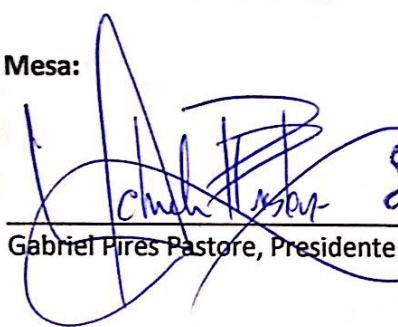 Mesa:
Gabriel Pires Pastore, Presidente